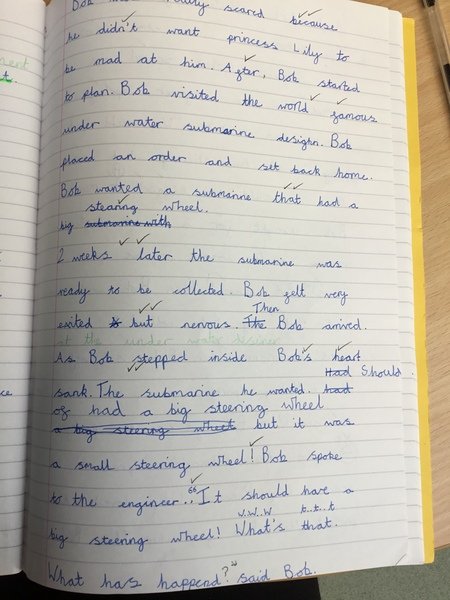 Bob was really scared because
he didn't want princess Lily to
be mad at him. After, Bob started
to plan. Bob visited the world famous
under water submarine desighn. Bob
placed an order and set back home.
Bob wanted a submarine that had a
stearing wheel.
big submarine with
2 weeks later the submarine was
ready to be collected. Bob felt very
Then
exited but nervous. The Bob arrived.
at the under water desiner
As Bob stepped inside Bob's heart
Had Should
sank. The submarine he wanted. had
of had a big steering wheel
a big steering wheel but it was
a small steering wheel! Bob spoke
to the engineer.. "It should have a
w..w..w t..t..t
big steering wheel! What's that.
What has happend?" said Bob.